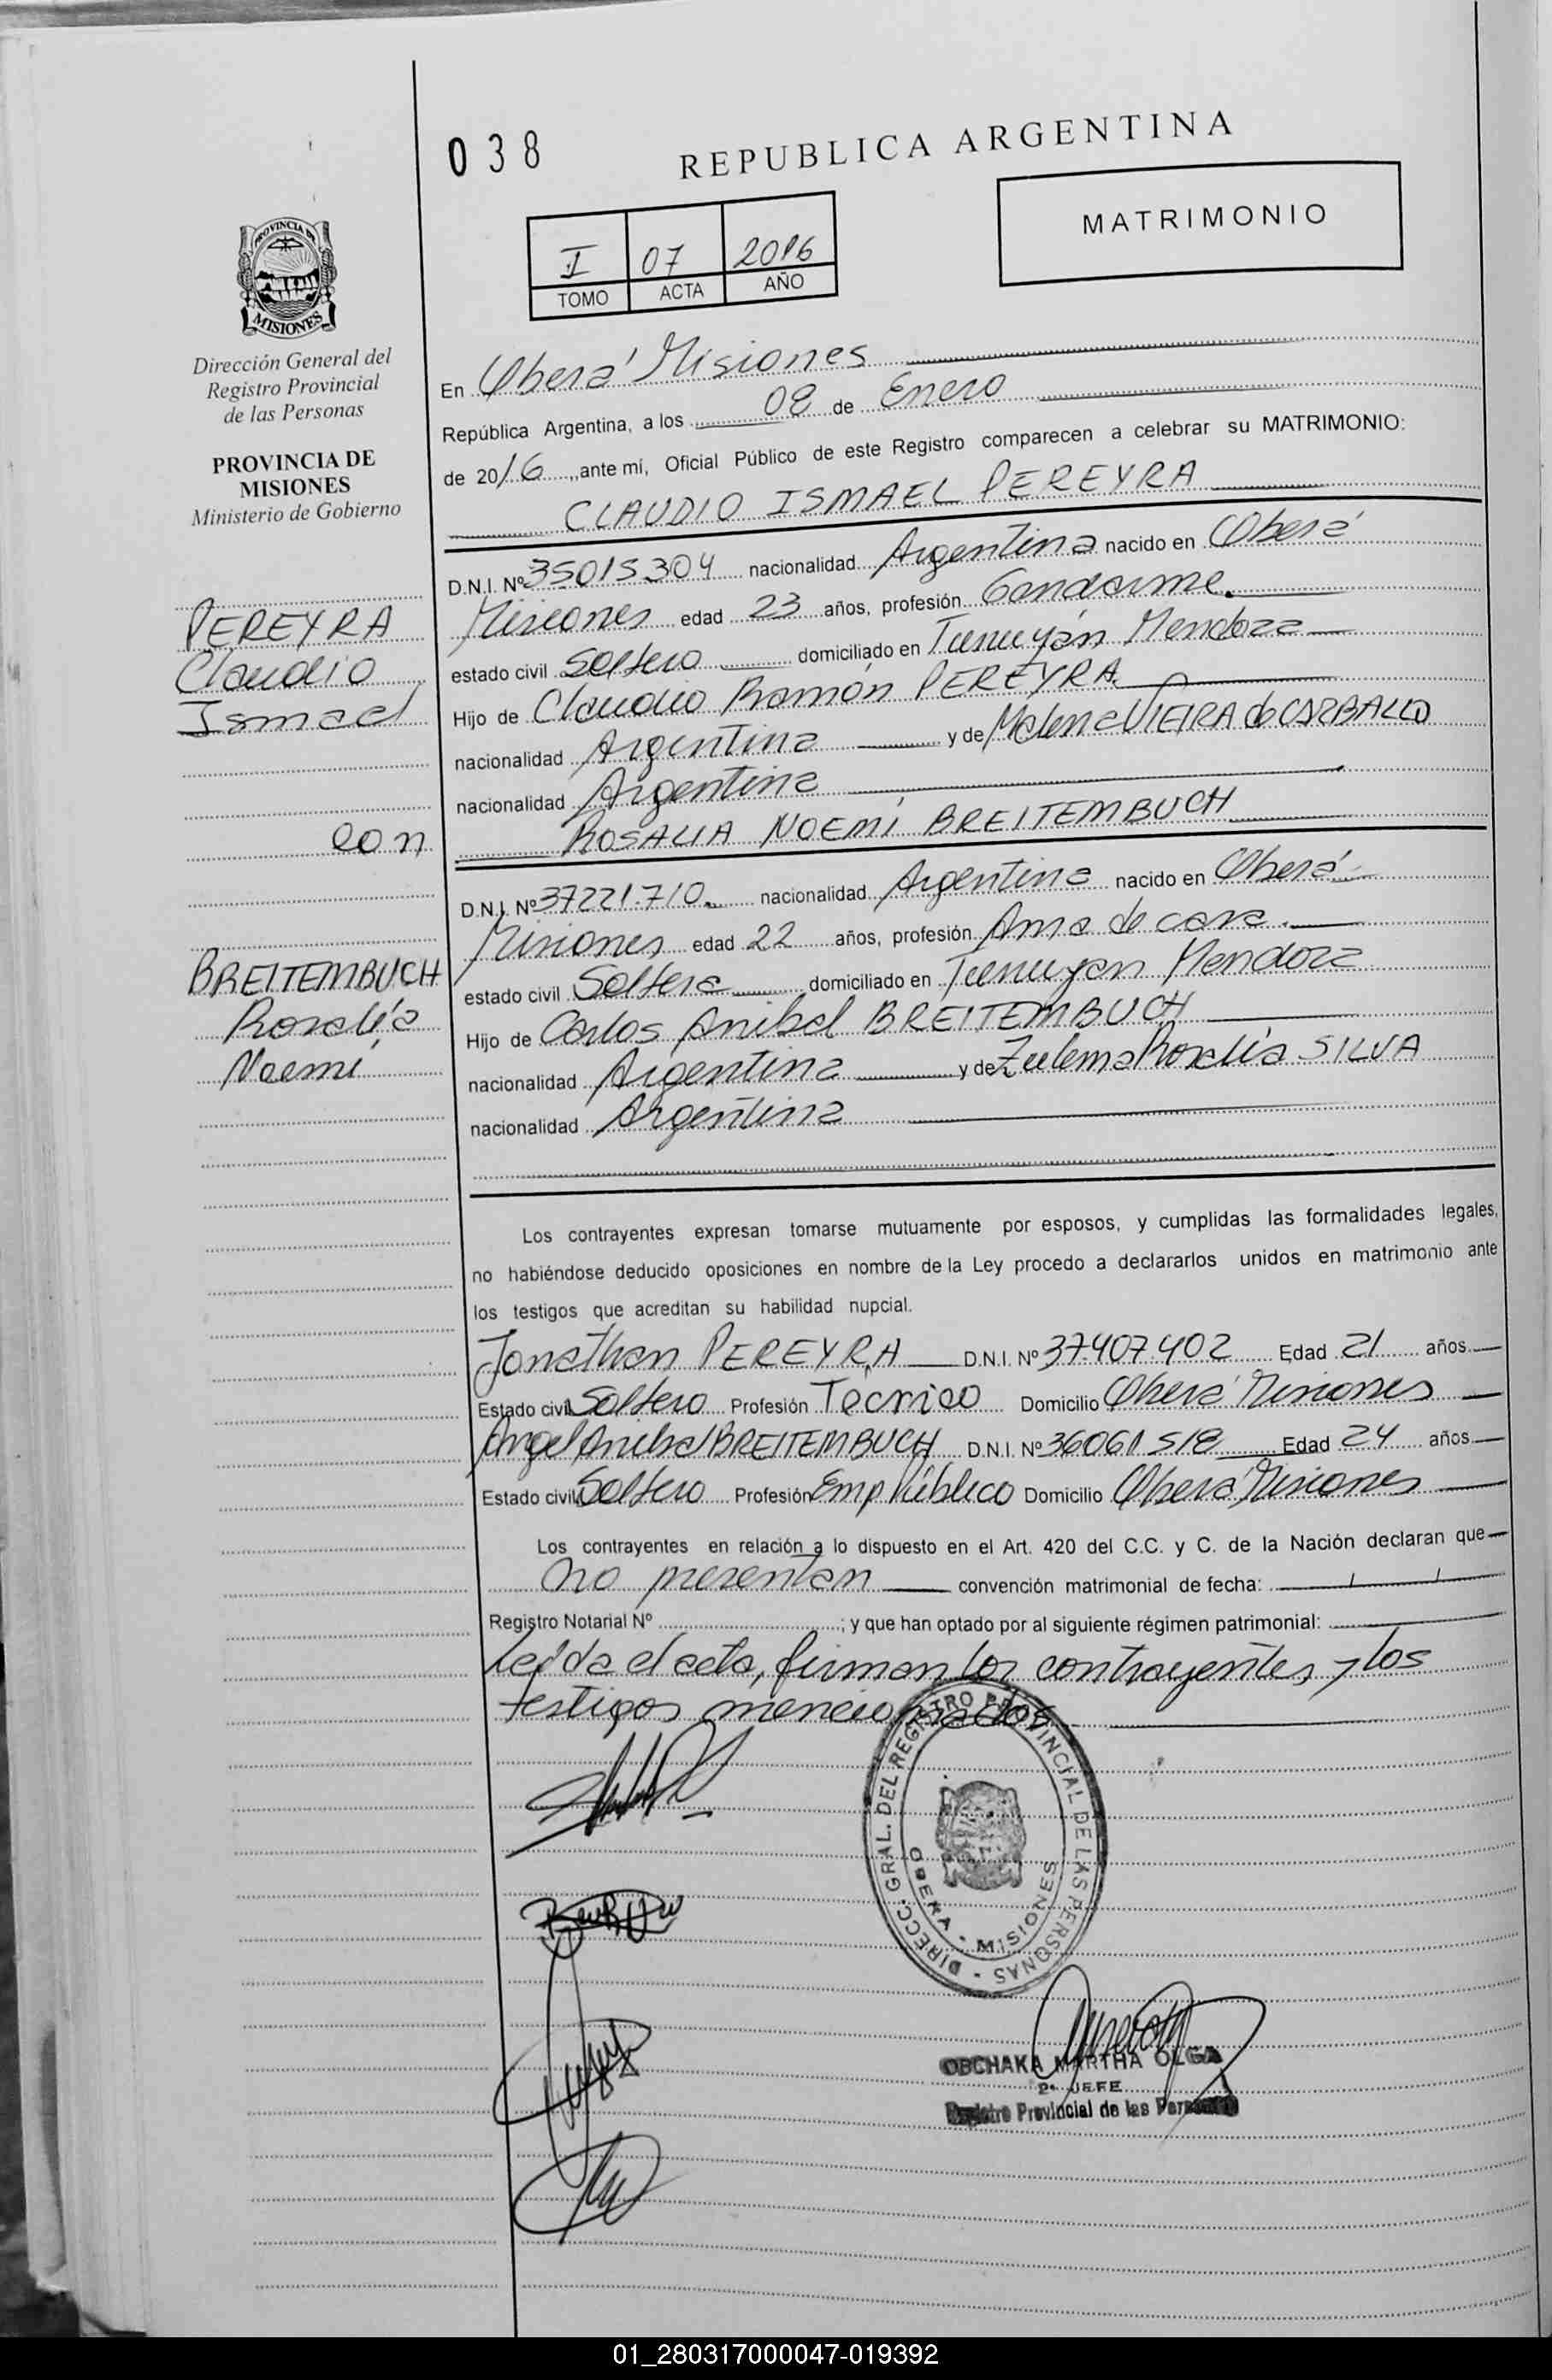 038
REPUBLICA ARGENTINA
MATRIMONIO
I 07 2016
TOMO ACTA AÑO
PROVINCIA DE
MISIONES
Dirección General del
Registro Provincial
de las Personas
PROVINCIA DE
MISIONES
Ministerio de Gobierno
PEREYRA
Claudio
Ismael
con
BREITEMBUCH
Rosalía
Noemí
En Oberá Misiones
República Argentina, a los 08 de Enero
de 2016, ante mí, Oficial Público de este Registro comparecen a celebrar su MATRIMONIO:
CLAUDIO ISMAEL PEREYRA
D.N.I. Nº 35015304 nacionalidad Argentina nacido en Oberá
Misiones edad 23 años, profesión Gendarme.
estado civil Soltero domiciliado en Tunuyán Mendoza
Hijo de Claudio Ramón PEREYRA
nacionalidad Argentina y de Malena VIEIRA de CARBALLO
nacionalidad Argentina
ROSALIA NOEMí BREITEMBUCH
D.N.I. Nº 37221.710 nacionalidad Argentina nacido en Oberá
Misiones edad 22 años, profesión Ama de casa.
estado civil Soltera domiciliado en Tunuyan Mendoza
Hijo de Carlos Anibal BREITEMBUCH
nacionalidad Argentina y de Zulema Rosalía SILVA
nacionalidad Argentina
Los contrayentes expresan tomarse mutuamente por esposos, y cumplidas las formalidades legales,
no habiéndose deducido oposiciones en nombre de la Ley procedo a declararlos unidos en matrimonio ante
los testigos que acreditan su habilidad nupcial.
Jonathan PEREYRA D.N.I. Nº 37.407.402 Edad 21 años
Estado civil Soltero Profesión Tecnico Domicilio Oberá Misiones
Angel Anibal BREITEMBUCH D.N.I. Nº 36061518 Edad 24 años
Estado civil Soltero Profesión Emp. Público Domicilio Oberá Misiones
Los contrayentes en relación a lo dispuesto en el Art. 420 del C.C. y C. de la Nación declaran que
no presentan convención matrimonial de fecha: / /
Registro Notarial Nº ; y que han optado por al siguiente régimen patrimonial:
Leída el acta, firman los contrayentes y los
testigos mencionados
DIRECC. GRAL. DEL REGISTRO PROVINCIAL DE LAS PERSONAS
OBERA - MISIONES
OBCHAKA MARTHA OLGA
2º JEFE
Registro Provincial de las Personas
01_280317000047-019392